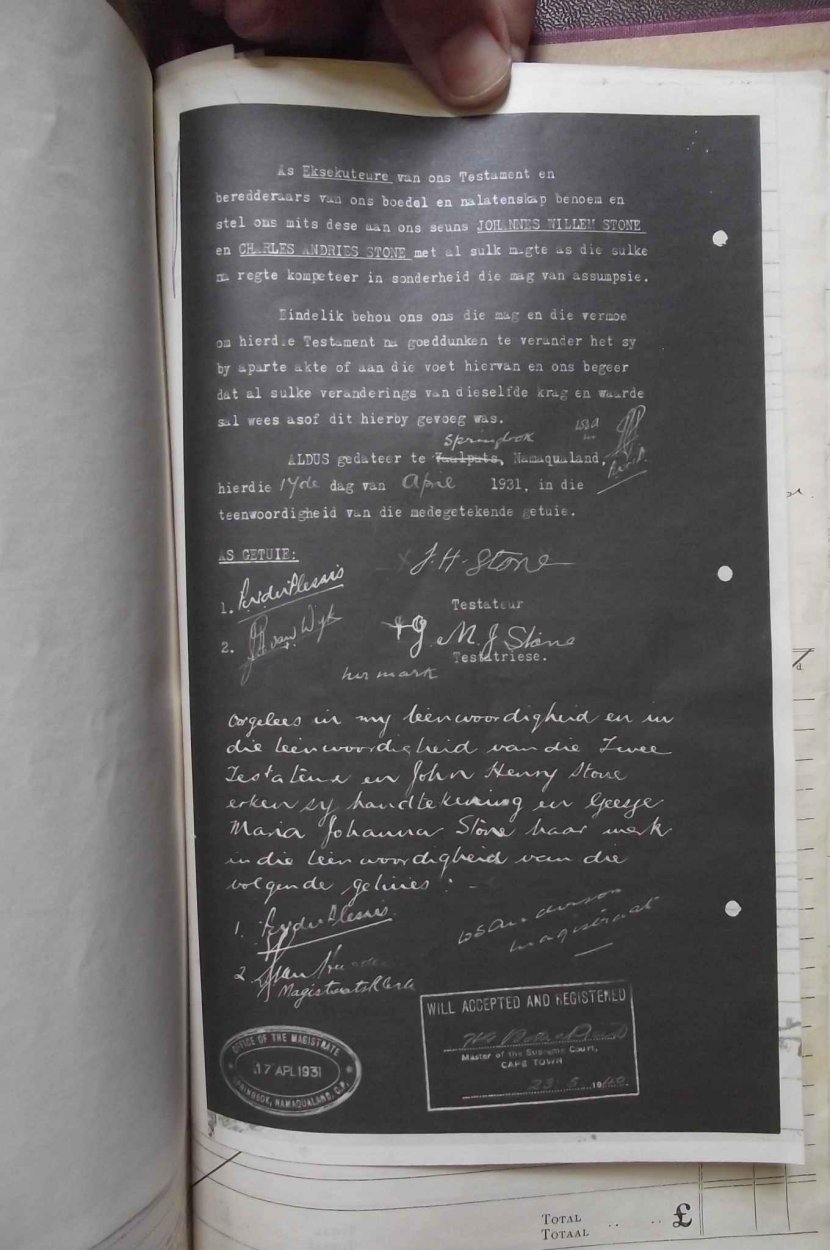 As Eksekuteure van ons Testament en
beredderaars van ons boedel en nalatenskap benoem en
stel ons mits dese aan ons seuns JOHANNES WILLEM STONE
en CHARLES ANDRIES STONE met al sulk magte as die sulke
na regte kompeteer in sonderheid die mag van assumpsie.
Eindelik behou ons ons die mag en die vermoe
om hierdie Testament na goeddunken te verander het sy
by aparte akte of aan die voet hiervan en ons begeer
dat al sulke veranderings van dieselfde krag en waarde
sal wees asof dit hierby gevoeg was.
Springbok
ALDUS gedateer te Vaalputs, Namaqualand,
hierdie 17de dag van April 1931, in die
teenwoordigheid van die medegetekende getuie.
AS GETUIE:
J. H. Stone
1. duPlessis
Testateur
2. van Wyk
G. M. J Stone
Testatriese.
her mark
Oorgelees in my teenwoordigheid en in
die teenwoordigheid van die Twee
Testateurs en John Henry Stone
erken sy handtekening en Geesje
Maria Johanna Stone haar merk
in die teenwoordigheid van die
volgende getuies :-
1. duPlessis
Magistraat
2.
Magistraatsklerk
WILL ACCEPTED AND REGISTERED
Master of the Supreme Court,
CAPE TOWN
23.5.1940
OFFICE OF THE MAGISTRATE
17 APL 1931
SPRINGBOK, NAMAQUALAND, C.P.
TOTAL .. .. £
TOTAAL